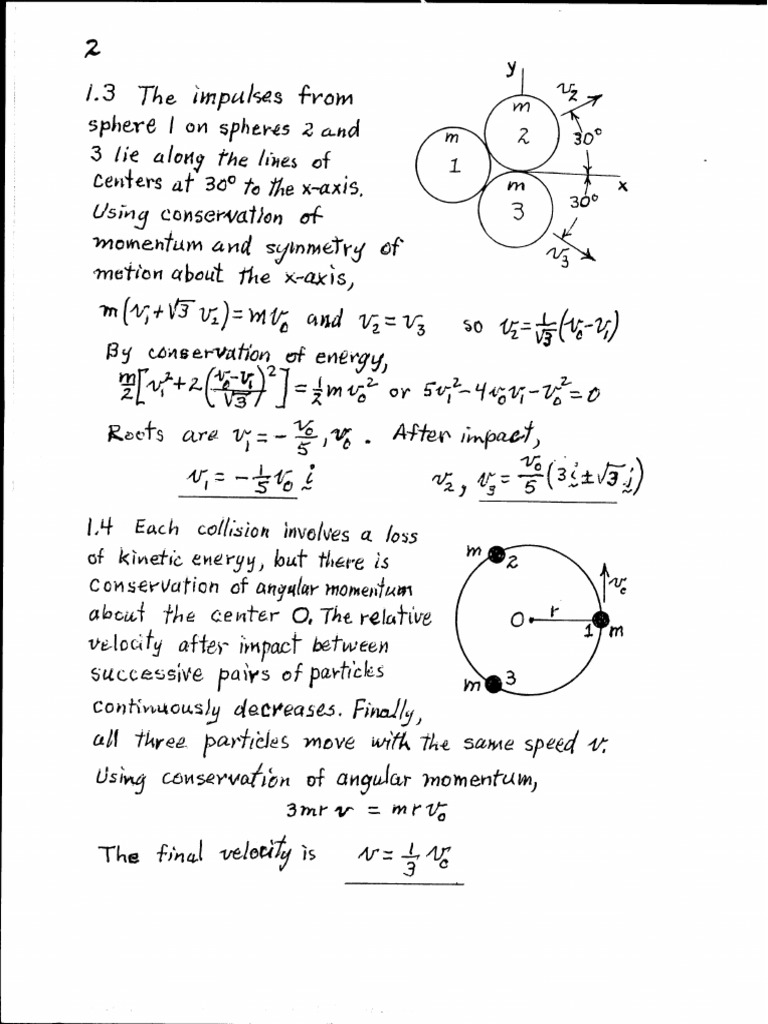 2
1.3 The impulses from
sphere 1 on spheres 2 and
3 lie along the lines of
centers at 30° to the x-axis.
Using conservation of
momentum and symmetry of
motion about the x-axis,
y
m
2
m
1
m
3
v₂
30°
x
30°
v₃
m(v₁+√3 v₂)=mv₀ and v₂=v₃ so v₂=1/√3(v₀-v₁)
By conservation of energy,
m/2[v₁²+2((v₀-v₁)/√3)²]=1/2mv₀² or 5v₁²-4v₀v₁-v₀²=0
Roots are v₁=-v₀/5, v₀. After impact,
v₁=-1/5v₀ i v₂, v₃=v₀/5(3i±√3 j)
1.4 Each collision involves a loss
of kinetic energy, but there is
conservation of angular momentum
about the center O. The relative
velocity after impact between
successive pairs of particles
continuously decreases. Finally,
m
2
v₀
O
r
1
m
m
3
all three particles move with the same speed v.
Using conservation of angular momentum,
3mr v = mr v₀
The final velocity is v=1/3 v₀